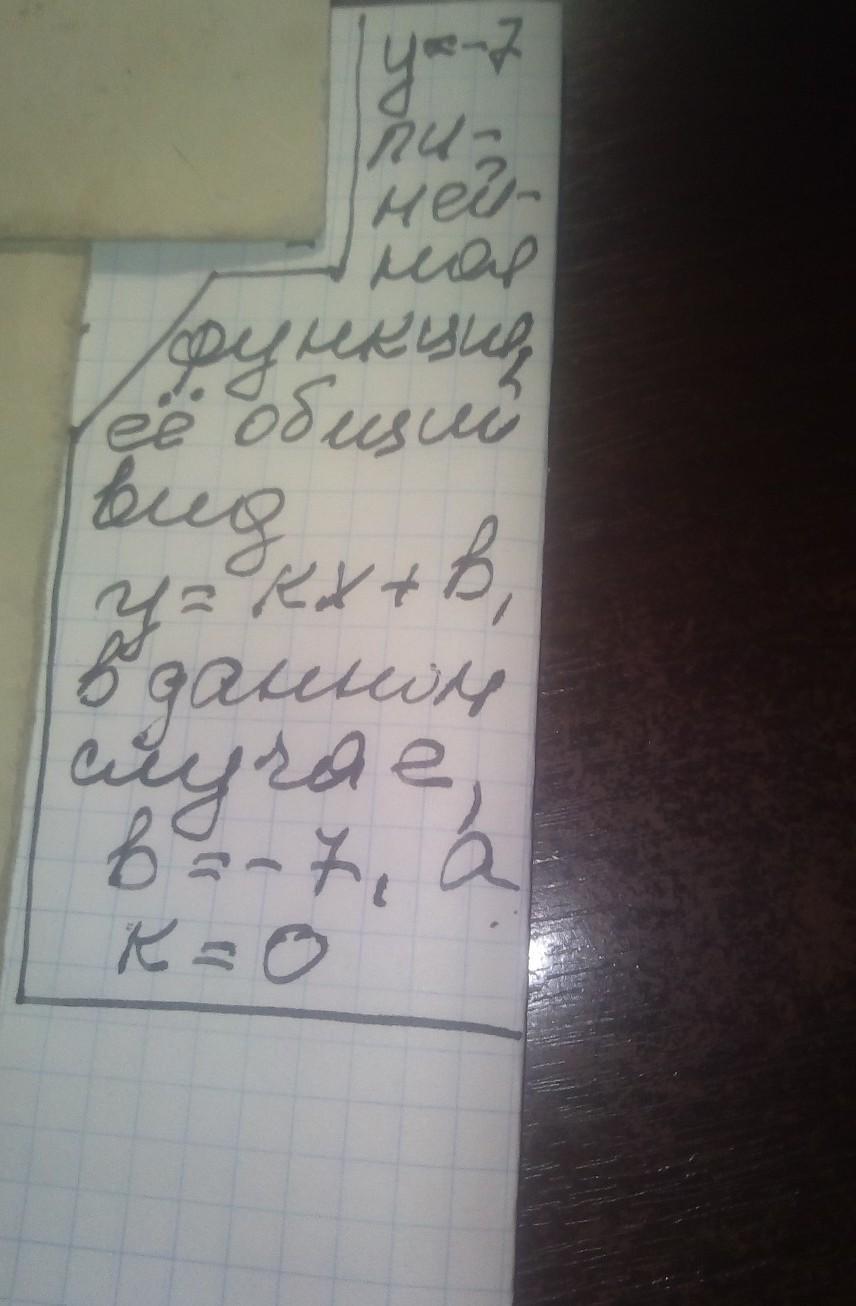 y=-7
ли-
ней-
ная
функция,
её общий
вид
y = кx + в,
в данном
случае,
в = - 7, а
к = 0